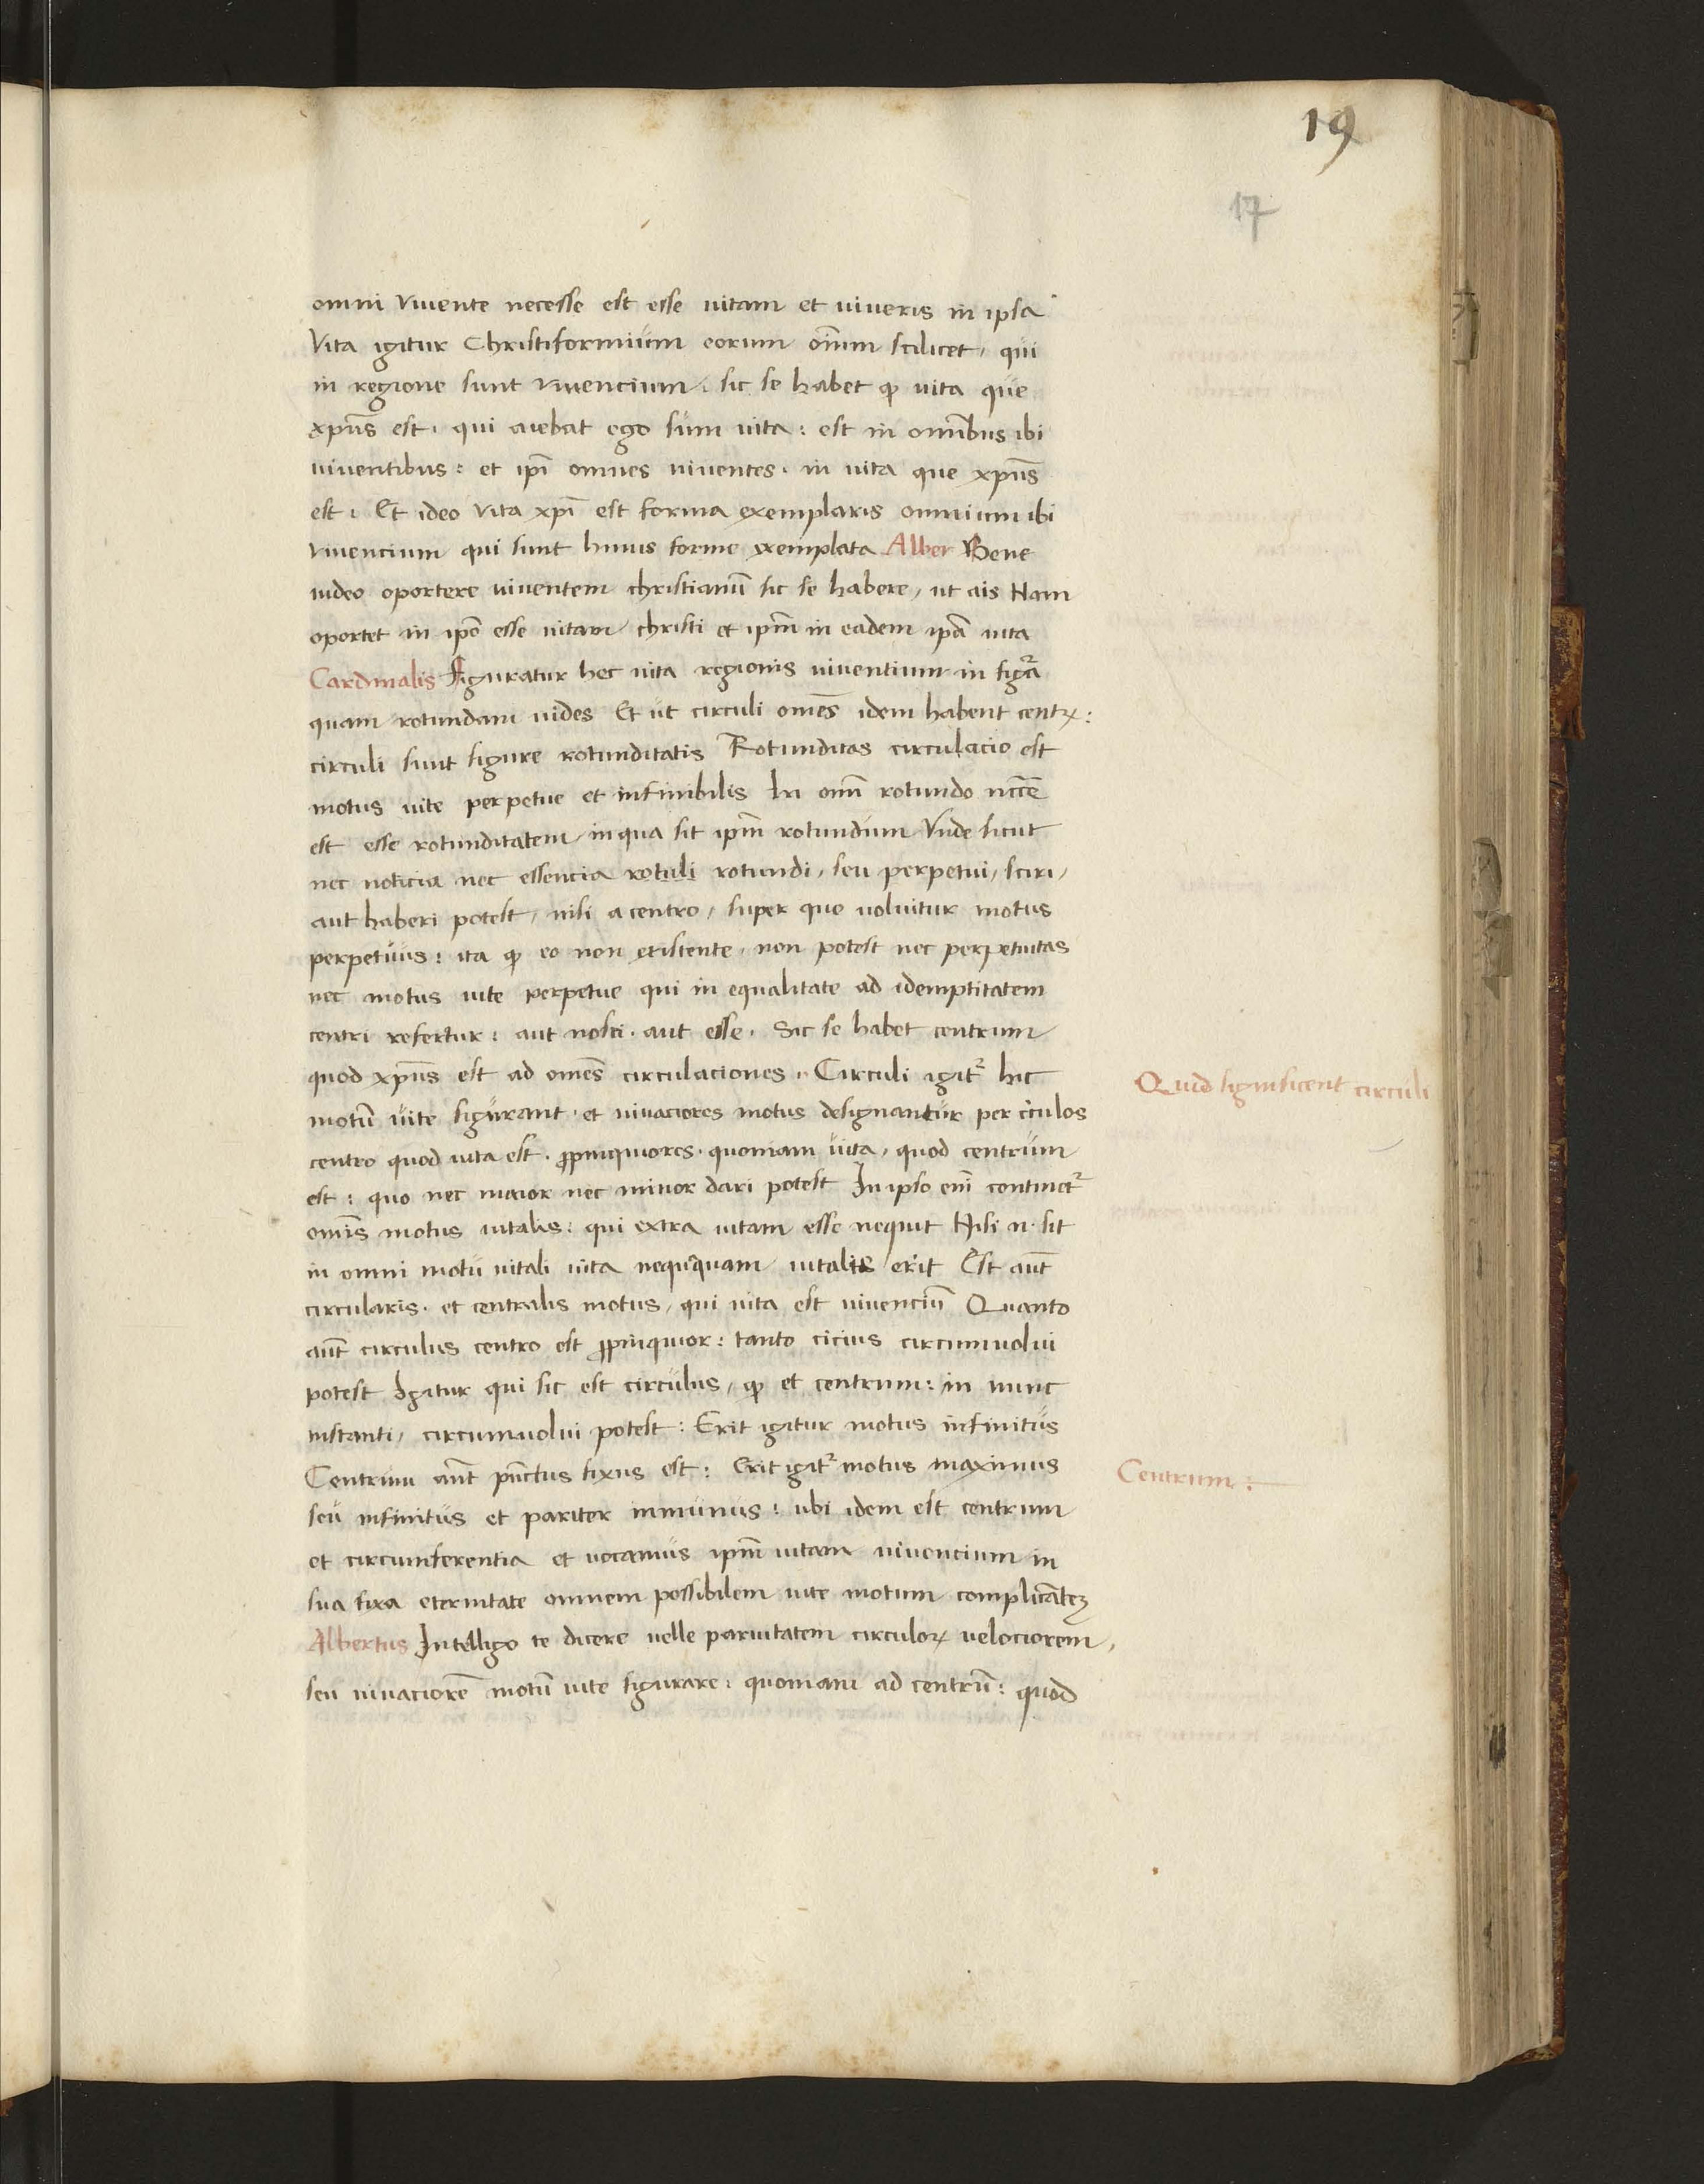 19
17
omni vivente necesse est esse uitam et uiueris in ipsa
Vita igitur Christiformium eorum oīum scilicet, qui
in regione sunt viuencium. sic se habet ꝙ uita que
xpūs est. qui aiebat ego sum uita: est in omībus ibi
uiuentibus: et ipī omnes uiuentes. in uita que xpūs
est. Et ideo vita xpī est forma exemplaris omnium ibi
viuencium qui sunt huius forme exemplata Alber Bene
uideo oportere uiuentem christianū sic se habere, ut ais Nam
oportet in ipō esse uitam christi et ipm̄ in eadem ipā uita
Cardinalis Figuratur hec uita regionis uiuentium in figᷓa
quam rotundam uides Et ut circuli omēs idem habent centꝝ:
circuli sunt figure rotunditatis Rotunditas circulacio est
motus uite perpetue et infinibilis In omī rotundo nccē̄
est esse rotunditatem in qua sit ipm̄ rotundum Vnde sicut
nec noticia nec essencia rotuli rotundi, seu perpetui, sciri,
aut haberi potest, nisi a centro, super quo uoluitur motus
perpetuus: ita ꝙ eo non existente, non potest nec perpetuitas
nec motus uite perpetue qui in equalitate ad idemptitatem
centri refertur: aut nosci. aut esse. Sic se habet centrum
quod xpūs est ad omēs circulaciones. Circuli igitᷣ hic
motū uite figurant. et uiuaciores motus designantur per c̄culos
centro quod uita est. ꝓpinquiores. quoniam uita, quod centrum
est: quo nec maior nec minor dari potest In ipso enī continetᷣ
omīs motus uitalis: qui extra uitam esse nequit Nisi n. sit
in omni motu uitali uita nequaquam uitalis erit Est aūt
circularis. et centralis motus, qui uita est uiuenciū Quanto
aūt circulus centro est ꝓpinquior: tanto cicius circumuolui
potest Igitur qui sic est circulus, ꝙ et centrum: in nunc
instanti, circumuolui potest: Erit igitur motus infinitus
Centrum aūt pūctus fixus est: Erit igitᷣ motus maximus
seu infinitus et pariter minimus: ubi idem est centrum
et circumferentia et uocamus ipm̄ uitam uiuencium in
sua fixa eternitate omnem possibilem uite motum complicāteꝫ
Albertus Intelligo te dicere uelle paruitatem circuloꝝ velociorem,
seu uiuaciorē motū uite figurare: quoniam ad centrū: quod
Quid significent circuli
Centrum: